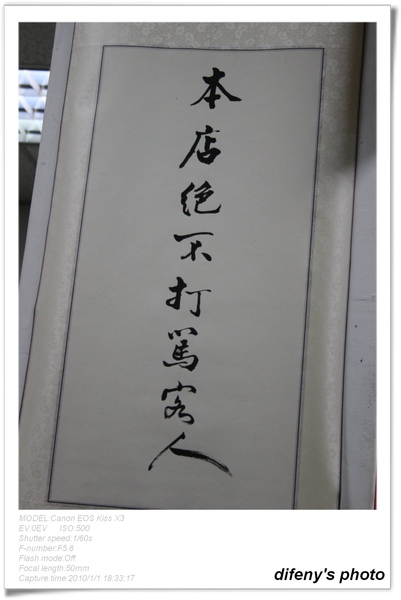 本店绝不打罵客人
MODEL:Canon EOS Kiss X3
EV:0EV ISO:500
Shutter speed:1/60s
F-number:F5.6
Flash mode:Off
Focal length:50mm
Capture time:2010/1/1 18:33:17
difeny's photo